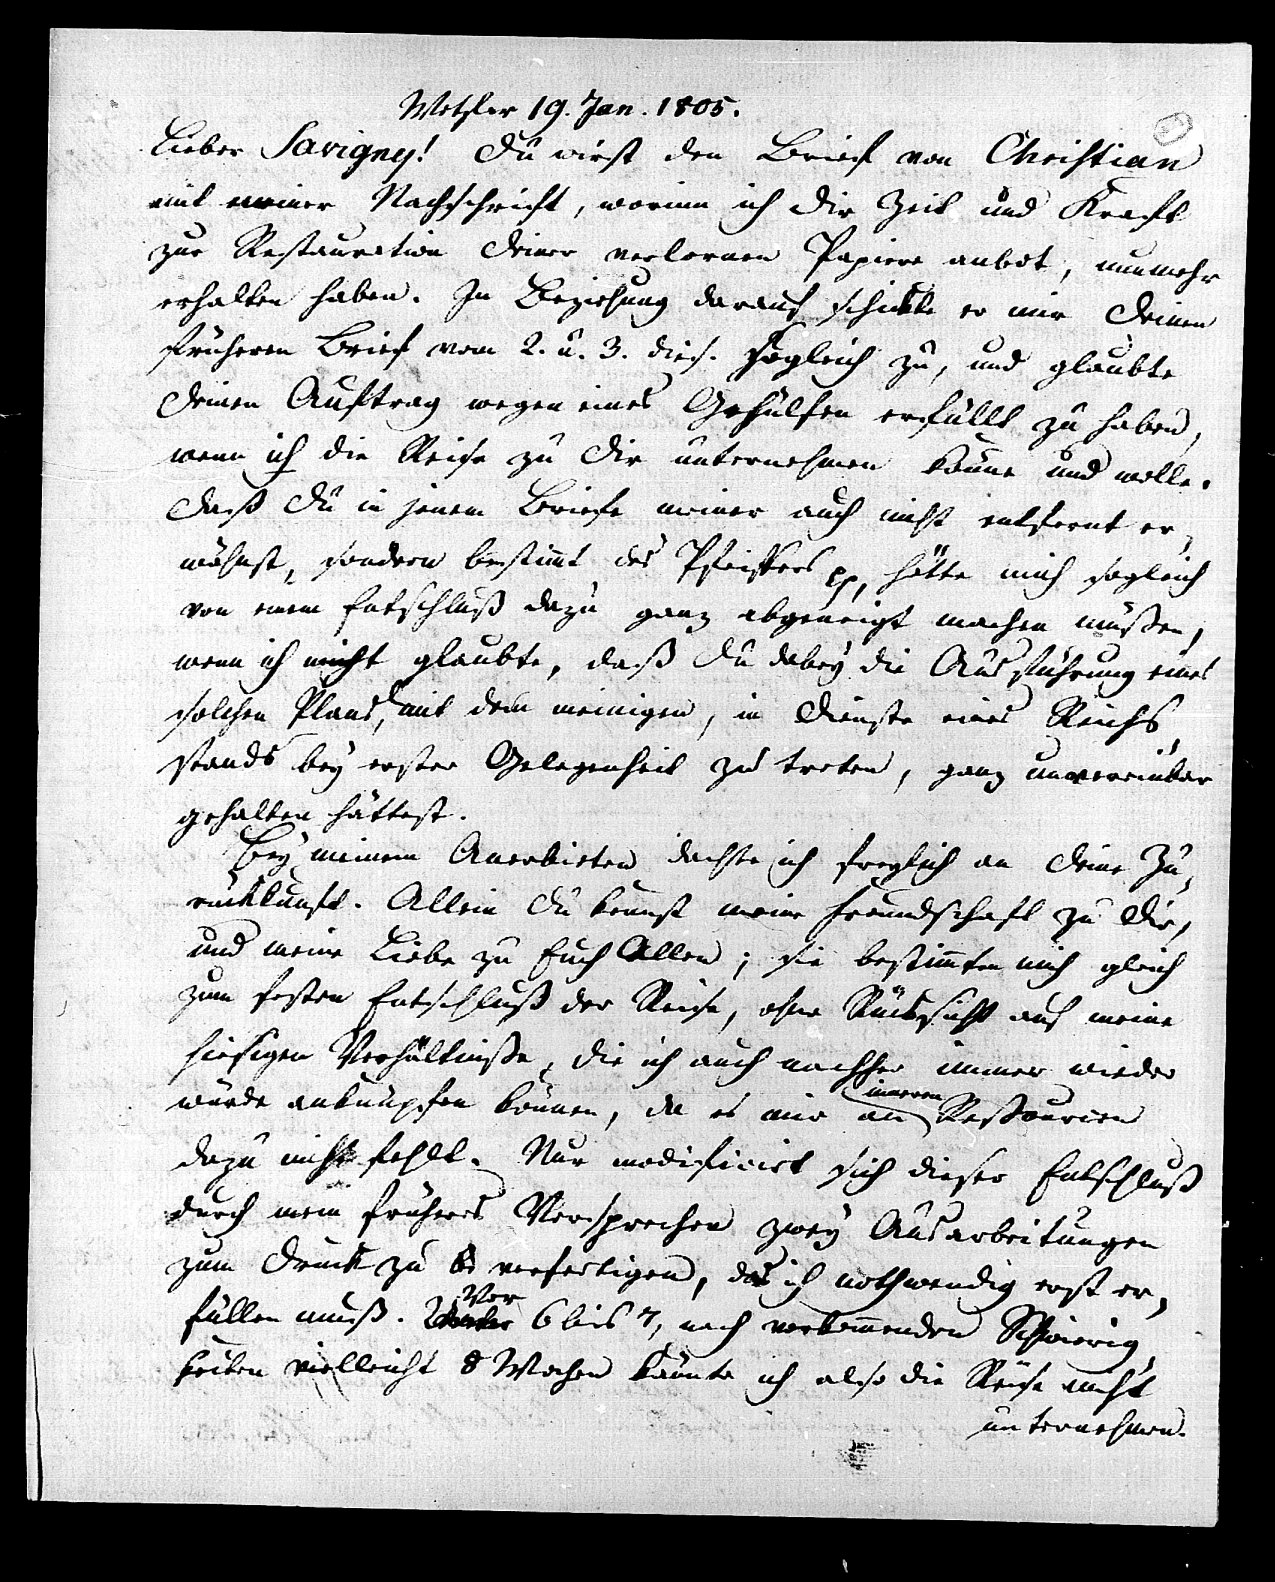 Wetzlar 19. Jan. 1805.
Lieber Savigny! Du wirst den Brief von Christian
mit meiner Nachschrift, worinn ich dir Zeit und Kraft
zur Restauration deiner verlornen Papiere anbot, nunmehr
erhalten haben. In Beziehung darauf schickte er mir deinen
früheren Brief vom 2. u. 3. dies. sogleich zu, und glaubte
deinen Auftrag wegen eines Gehülfen erfüllt zu haben,
wenn ich die Reise zu dir unternehmen könne und wolle.
Daß du in jenem Briefe meiner auch nicht entfernt er-
wähnst, sondern bestimt des Pfeiffers pp, hätte mich sogleich
von einem Entschluß dazu ganz abgeneigt machen müßen,
wenn ich nicht glaubte, daß du dabey die Ausführung eines
solchen Plans, mit dem meinigen, in Dienste eines Reichs-
stands bey erster Gelegenheit zu treten, ganz unvereinbar
gehalten hättest.
Bey meinem Anerbieten dachte ich freylich an deine Zu-
rückkunft. Allein du kennst meine Freundschaft zu dir,
und meine Liebe zu Euch Allen; sie bestimten mich gleich
zum festen Entschluß der Reise, ohne Rücksicht auf meine
hiesigen Verhältniße, die ich auch nachher immer wieder
würde anknüpfen können, da es mir an inneren Ressourcen
dazu nicht fehlt. Nur modificirt sich dieser Entschluß
durch mein früheres Versprechen zwey Ausarbeitungen
zum Druck zu verfertigen, das ich nothwendig erst er-
füllen muß. Vor 6 bis 7, nach vorkommenden Schwierig-
keiten vielleicht 8 Wochen könnte ich also die Reise nicht
unternehmen.